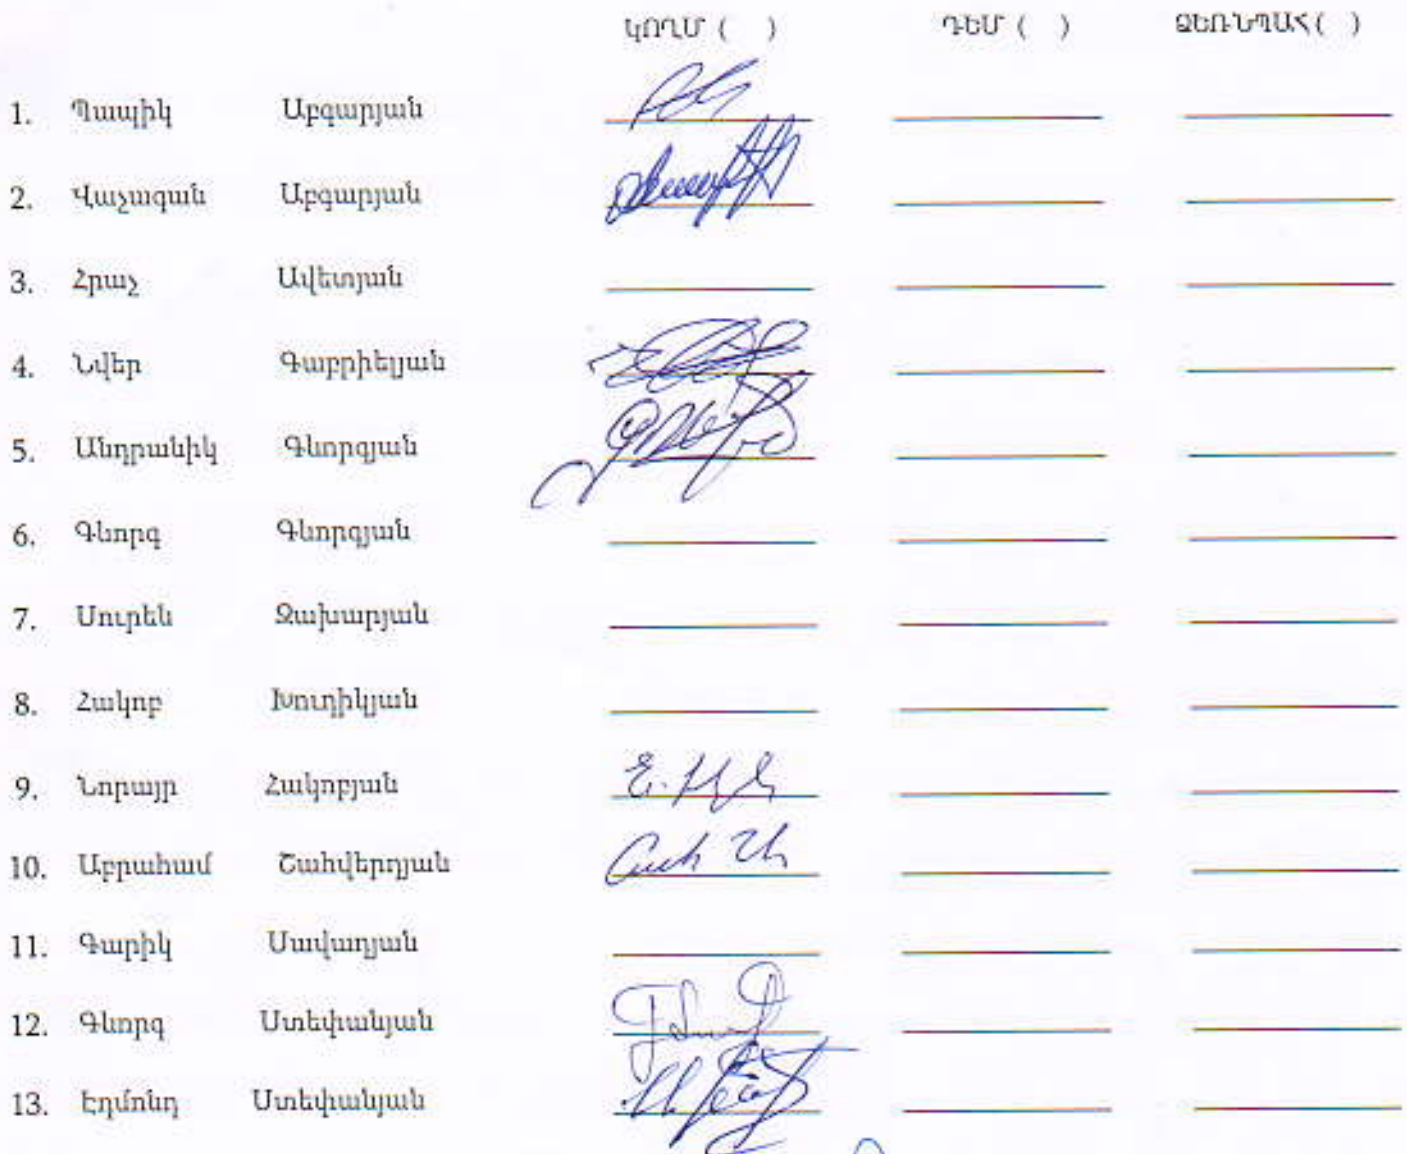 ԿՈՂՄ ( ) ԴԵՄ ( ) ՁԵՌՆՊԱՀ ( )
1. Պապիկ Աբգարյան
2. Վաչագան Աբգարյան
3. Հրաչ Ավետյան
4. Նվեր Գաբրիելյան
5. Անդրանիկ Գևորգյան
6. Գևորգ Գևորգյան
7. Սուրեն Զախարյան
8. Հակոբ Խուդիկյան
9. Նորայր Հակոբյան
10. Աբրահամ Շահվերդյան
11. Գարիկ Սավադյան
12. Գևորգ Ստեփանյան
13. Էդմոնդ Ստեփանյան